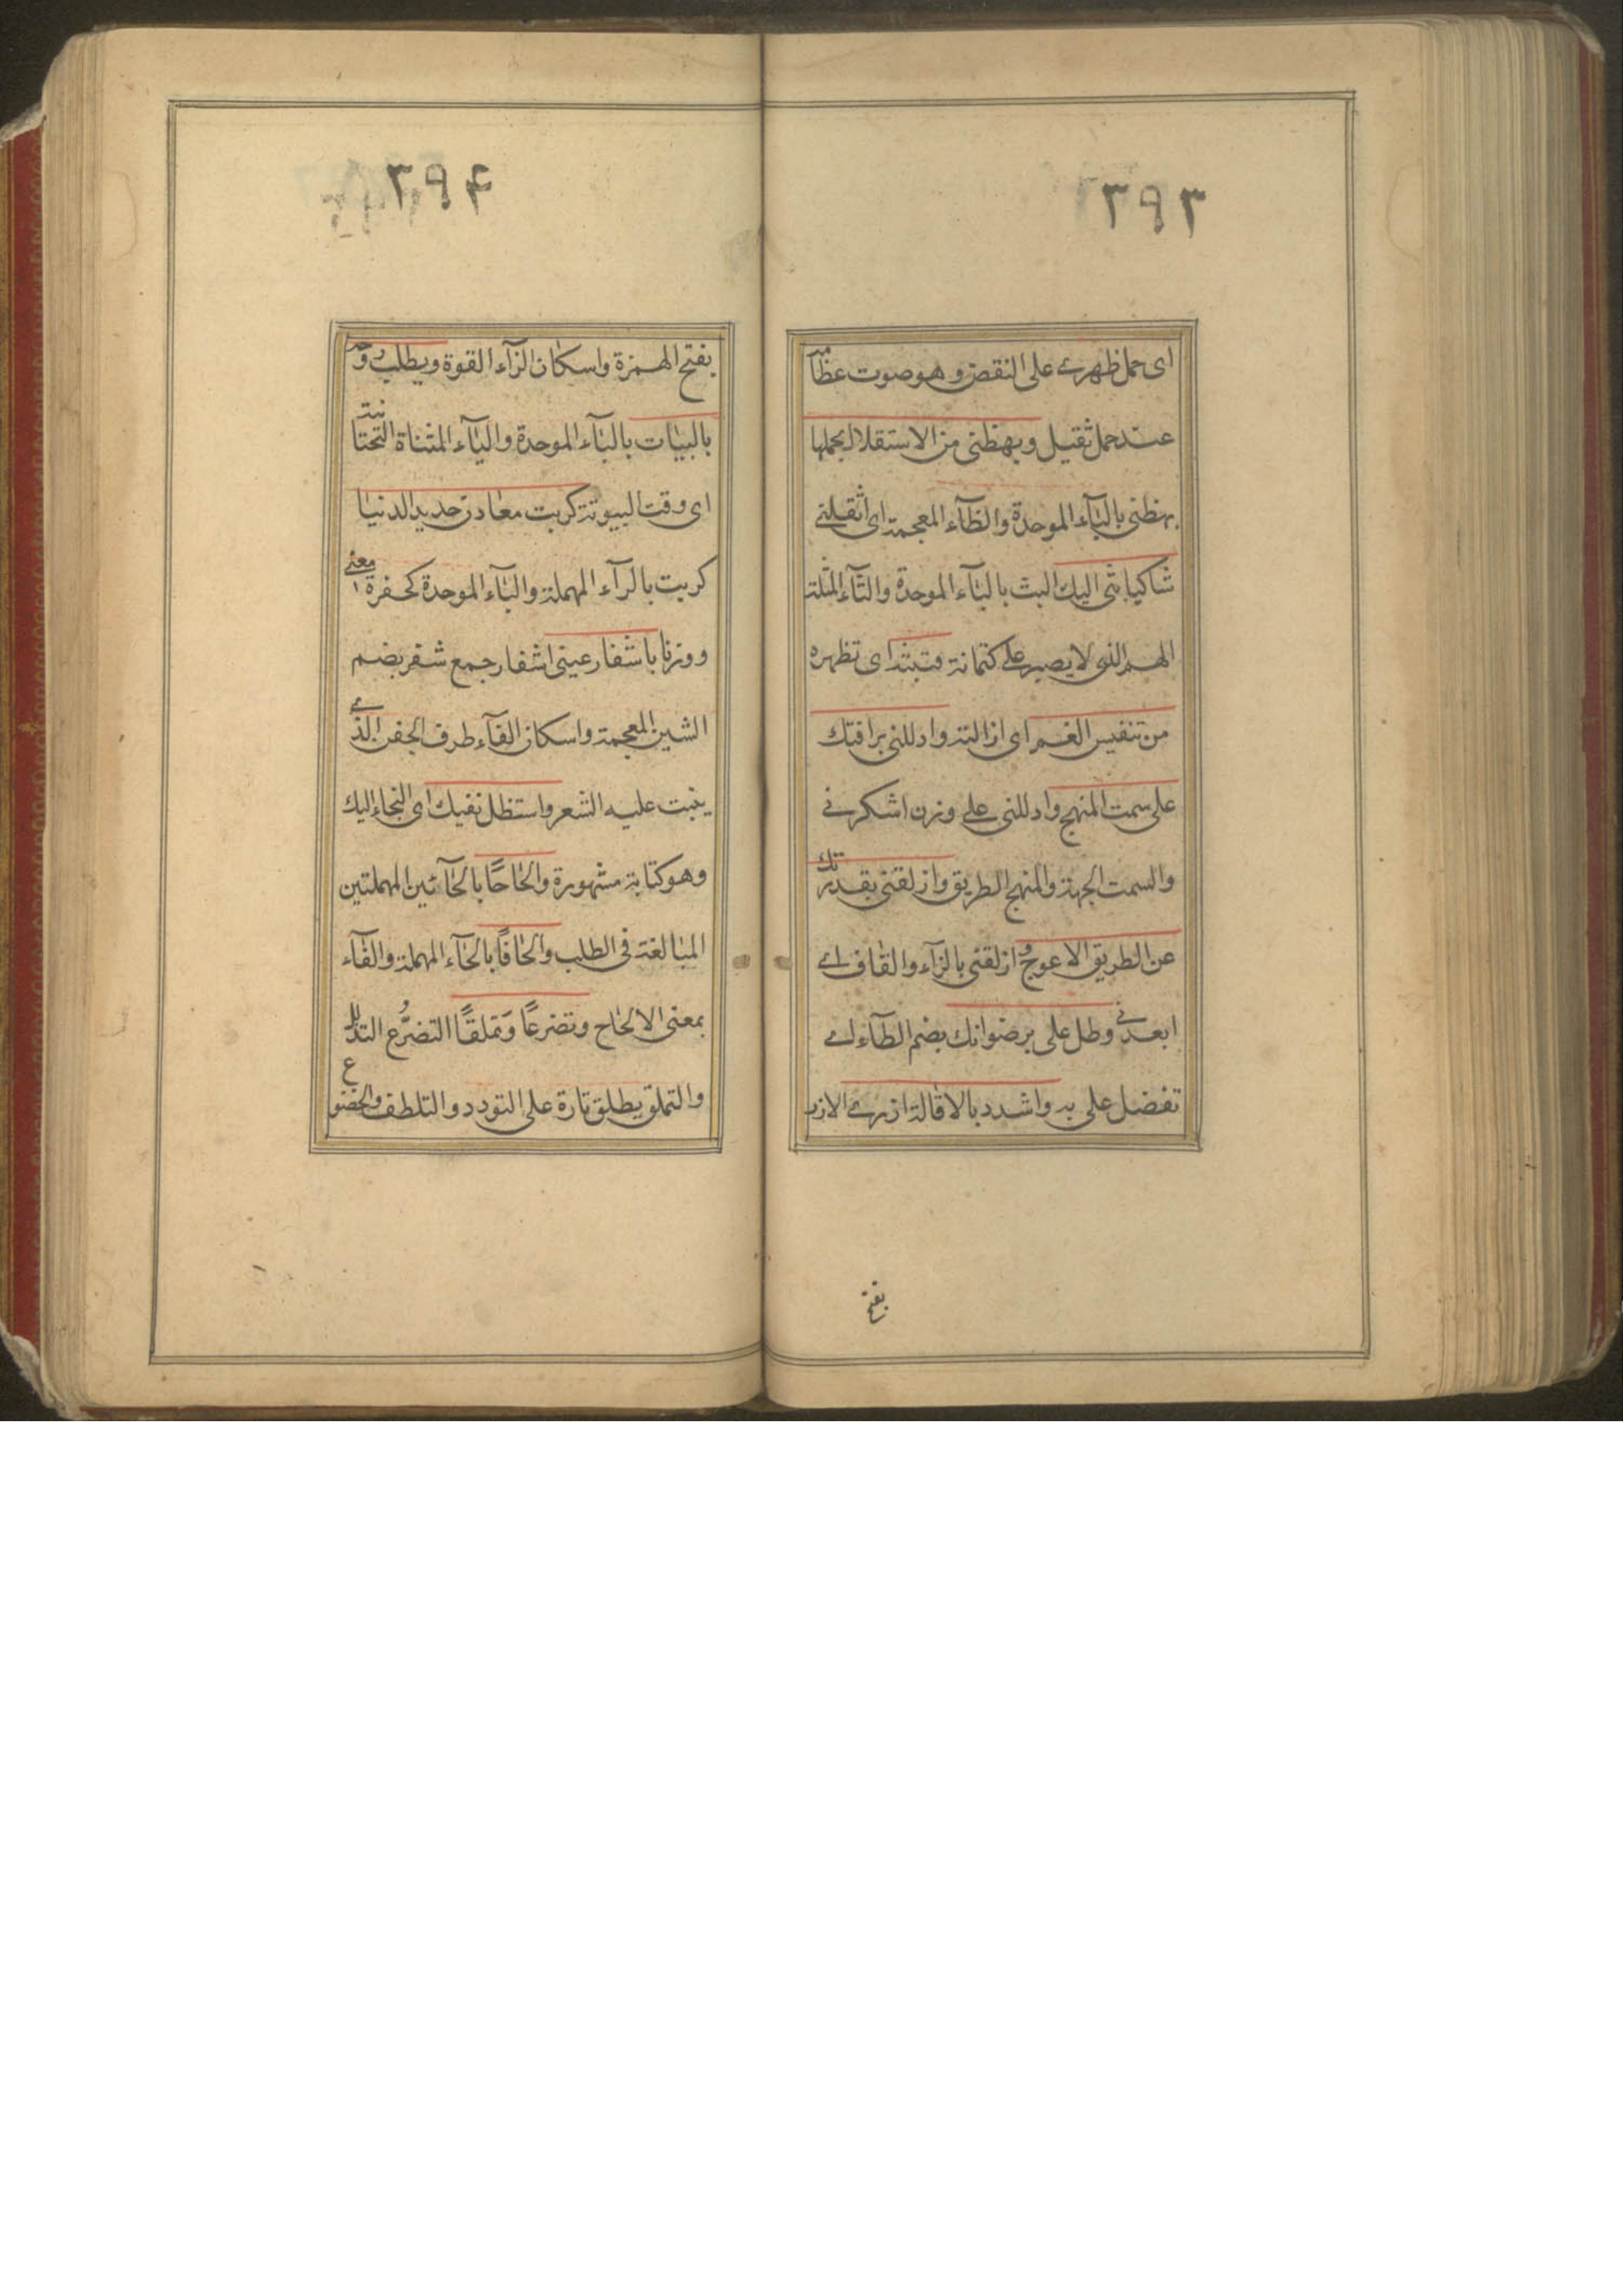 ٣٩٣
اى حمل ظهرے على النقض وهو صوت عظامه
عند حمل ثقيل وبهظنى من الاستقلال بحملها
بهظنى بالبآء الموحدة والظآء المعجمة اى اثقلنے
شاكيا بثى اليك البث بالبآء الموحدة والثآء المثلثة
الهم الذى لا يصبر على كتمانه فتبثه اى تظهره
من تنفيس الغم اى ازالته وادللنى برافتك
على سمت المنهج وادللنى على وزن اشكرنے
والسمت الجهة والمنهج الطريق وازلقنى بقدرتك
عن الطريق الاعوج ازلقنى بالزآء والقاف اے
ابعدنے وطل على برضوانك بضم الطآء اے
تفضل على به واشدد بالاقالة ازرے الازر
بفتح
٣٩۴
بفتح الهمزة واسكان الزآء القوة ويطلب
بالبيات بالبآء الموحدة واليآء المثناة التحتانية
اى وقت البيوتة كربت معادن حديد الدنيا
كربت بالرآء المهملة والبآء الموحدة كحفرة معنى
ووزنا باشفار عينى اشفار جمع شفر بضم
الشين المعجمة واسكان الفآء طرف الجفن الذے
ينبت عليه الشعر واستظل بفيك اى التجاء اليك
وهو كناية مشهورة والحاحًا بالحآئين المهملتين
المبالغة فى الطلب والحافًا بالحآء المهملة والفآء
بمعنى الالحاح وتضرعًا وَتملقًا التضرُّع التذلل
والتملق يطلق تارة على التودد والتلطف والخضوع